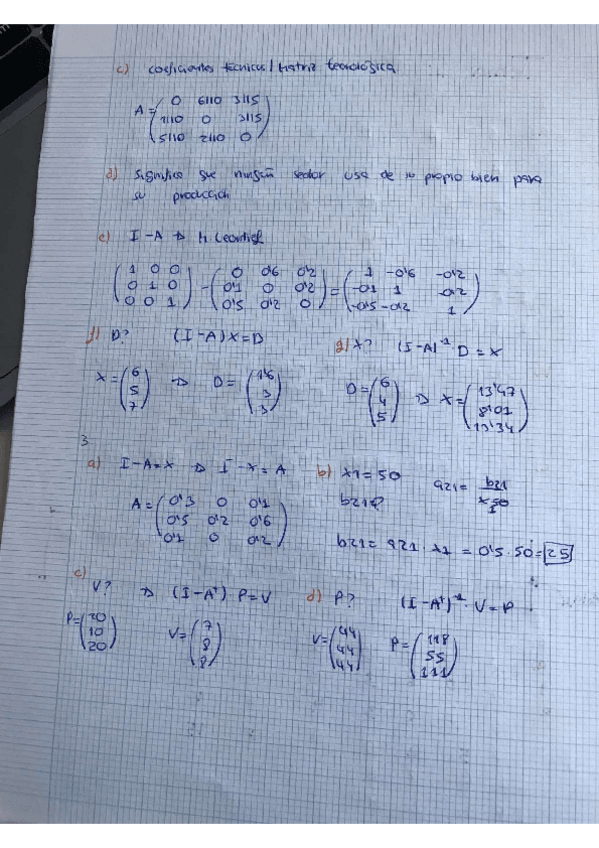 c) coeficientes técnicos / Matriz tecnológica
A = ( 0 6/10 3/15
1/10 0 3/15
5/10 2/10 0 )
d) Significa que ningún sector usa de su propio bien para
su producción
e) I - A → M. Leontief
( 1 0 0
0 1 0
0 0 1 ) - ( 0 0'6 0'2
0'1 0 0'2
0'5 0'2 0 ) = ( 1 -0'6 -0'2
-0'1 1 -0'2
-0'5 -0'2 1 )
f) D? (I-A)X=D
X = ( 6
5
7 ) → D = ( 1'6
3
3 )
g) X? (I-A)⁻¹ D = X
D = ( 6
4
5 ) → X = ( 13'47
8'01
13'34 )
3
a) I-A=X → I-X=A
A = ( 0'3 0 0'1
0'5 0'2 0'6
0'1 0 0'2 )
b) X1=50
b21?
a21 = b21 / X1
b21 = a21 · X1 = 0'5 · 50 = 25
c)
V? → (I-Aᵗ) P=V
P= ( 20
10
20 )
V= ( 7
8
8 )
d) P? (I-Aᵗ)⁻¹ · V=P
V= ( 44
44
44 )
P= ( 118
55
111 )